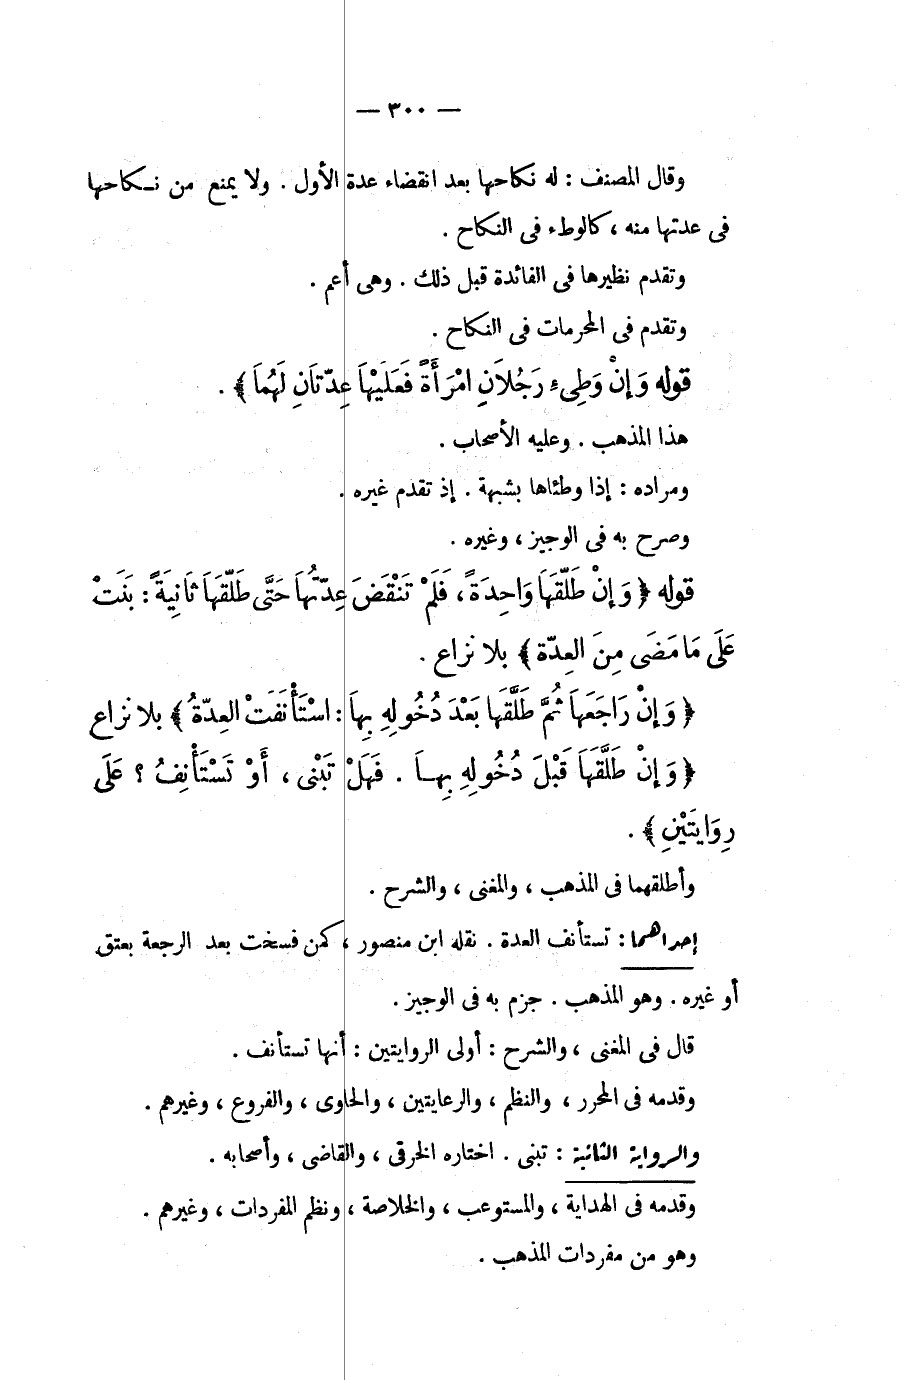 — ٣٠٠ —
وقال المصنف : له نكاحها بعد انقضاء عدة الأول . ولا يمنع من نـكاحها
فى عدتها منه ، كالوطء فى النكاح .
وتقدم نظيرها فى الفائدة قبل ذلك . وهى أعم .
وتقدم فى المحرمات فى النكاح .
قوله وَإِنْ وَطِىءَ رَجُلاَنِ امْرَأَةً فَعَلَيْهَا عِدّتَانِ لَهُمَا ﴾ .
هذا المذهب . وعليه الأصحاب .
ومراده : إذا وطئاها بشبهة . إذ تقدم غيره .
وصرح به فى الوجيز ، وغيره .
قوله ﴿ وَإِنْ طَلّقَهَا وَاحِدَةً ، فَلَمْ تَنْقَضِ عِدّتُهَا حَتَّى طَلّقَهَا ثَانِيَةً : بَنَتْ
عَلَى مَا مَضَى مِنَ العِدّة ﴾ بلا نزاع .
﴿ وَإِنْ رَاجَعَهَا ثُمَّ طَلَّقَهَا بَعْدَ دُخُولِهِ بِهَا : اسْتَأْنَفَتْ العِدّةُ ﴾ بلا نزاع
﴿ وَإِنْ طَلَّقَهَا قَبْلَ دُخُولِهِ بِهــا . فَهَلْ تَبْنى ، أَوْ تَسْتَأْنِفُ ؟ عَلَى
رِوَايَتَيْنِ ﴾ .
وأطلقهما فى المذهب ، والمغنى ، والشرح .
إحداهما : تستأنف العدة . نقله ابن منصور ، كمن فسخت بعد الرجعة بعتق
أو غيره . وهو المذهب . جزم به فى الوجيز .
قال فى المغنى ، والشرح : أولى الروايتين : أنها تستأنف .
وقدمه فى المحرر ، والنظم ، والرعايتين ، والحاوى ، والفروع ، وغيرهم .
والرواية الثانية : تبنى . اختاره الخرقى ، والقاضى ، وأصحابه .
وقدمه فى الهداية ، والمستوعب ، والخلاصة ، ونظم المفردات ، وغيرهم .
وهو من مفردات المذهب .